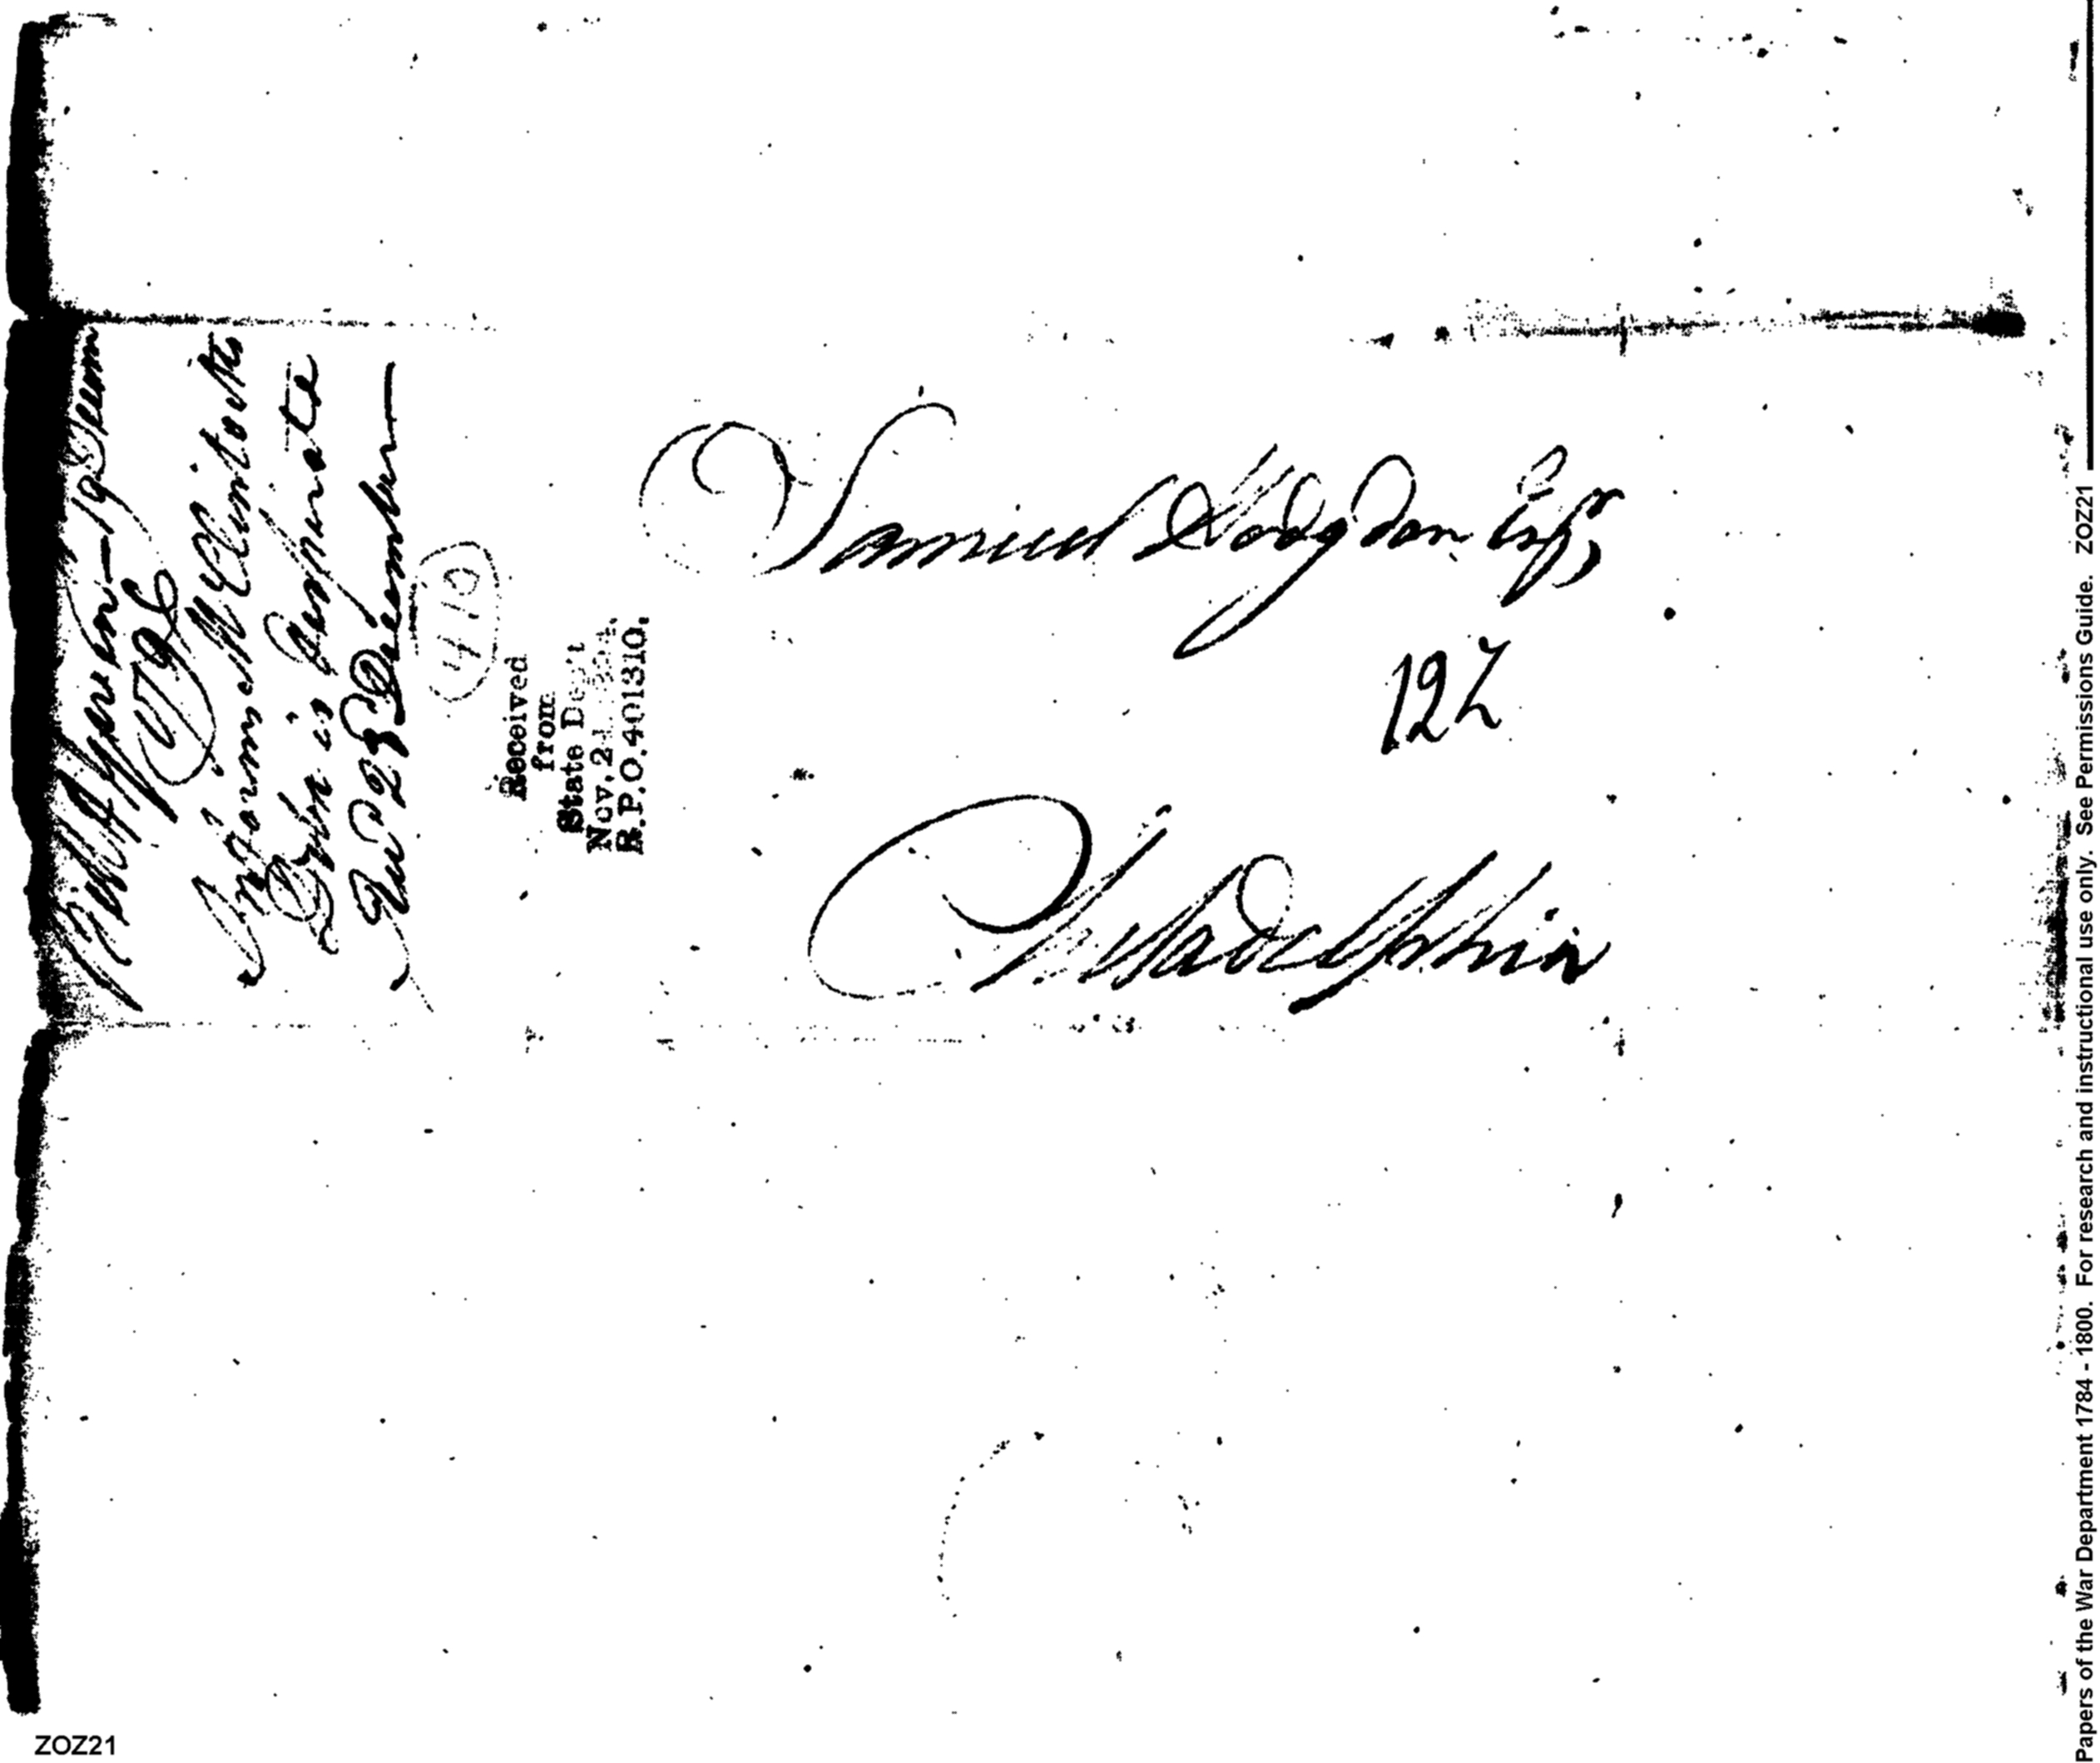 Samuel Hodgdon Esqr,
122
Philadelphia
19 Decem
1796
Informs McClintock
Debt is
Recd 28 December
Received
from
State Dep't
Nov. 2
R.P.O. 401310.
Papers of the War Department 1784 - 1800. For research and instructional use only. See Permissions Guide. ZOZ21
ZOZ21